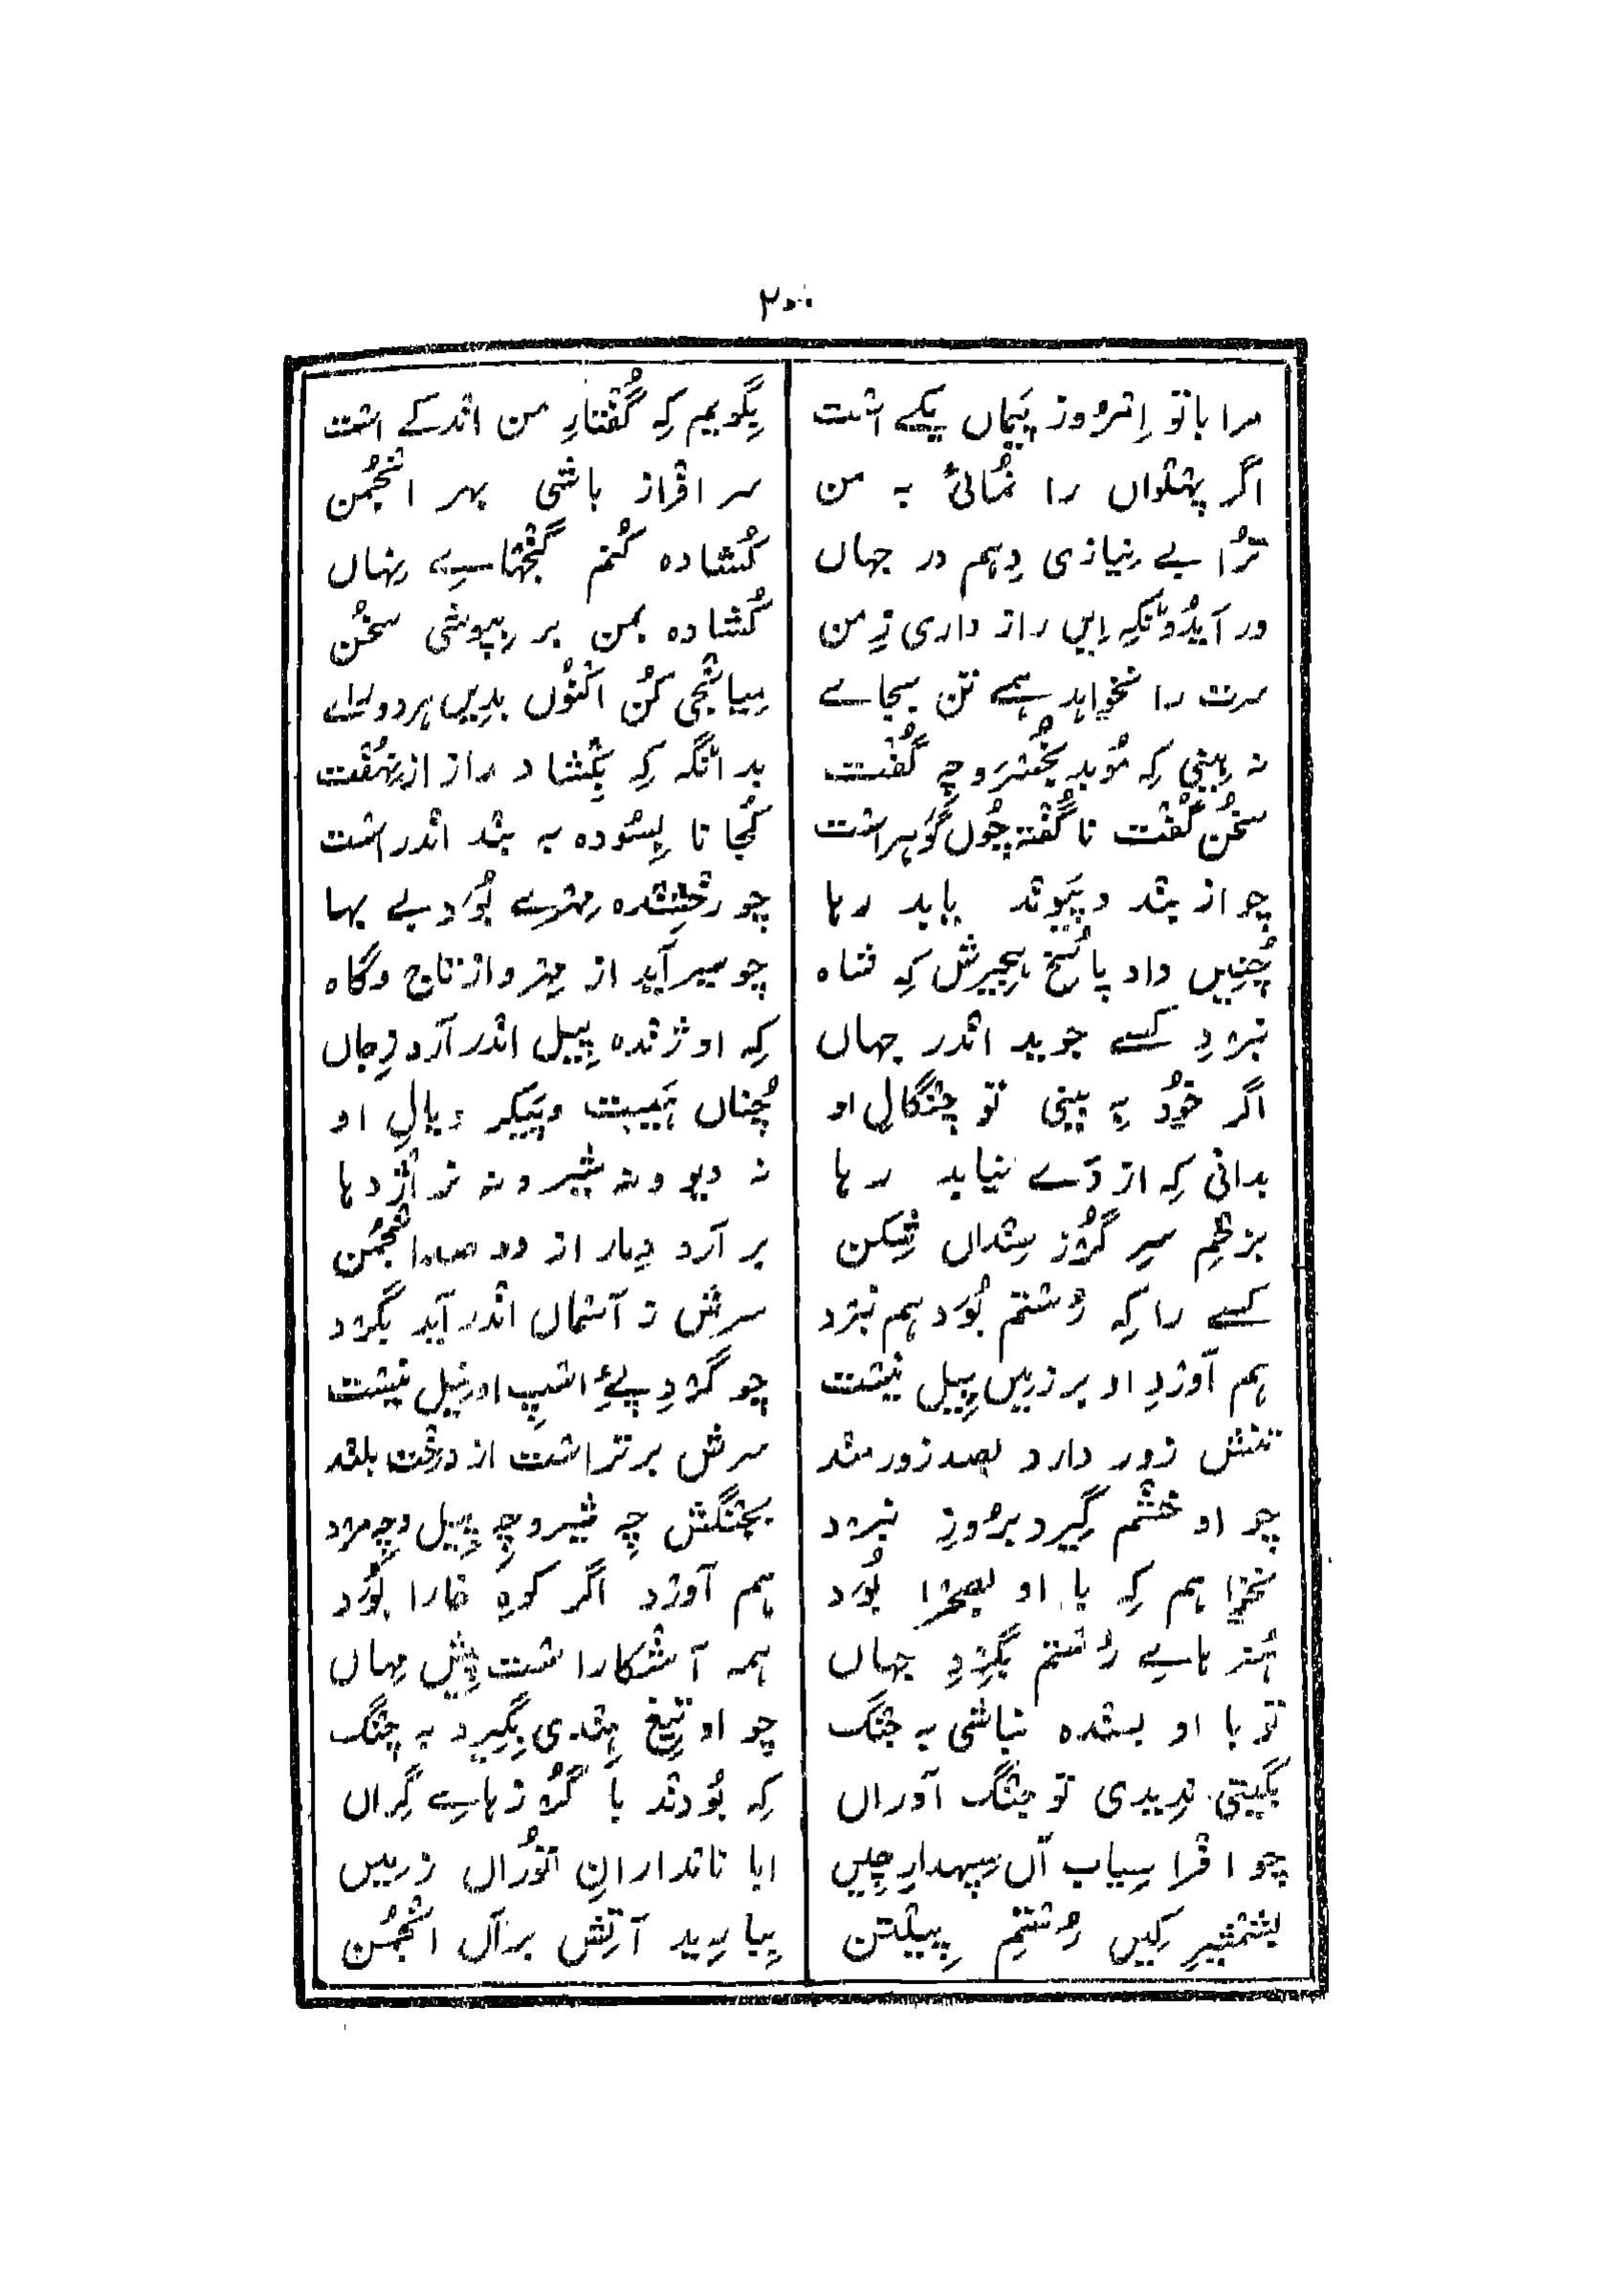 ۲۰۰
مرا با تو اِمْروز پَیماں یکے اسْت بِگویم کِہ گُفْتارِ من انْدکے اسْت
اگر پہْلواں را نُمائی بہ من سر افْراز باشی بہر انْجُمن
تُرا بے نِیازی دِہم در جہاں کُشادہ کُنم گنْجہاسے نِہاں
ور آیدُوْنکِہ اِیں راز داری زِ من کُشادہ بمن بر بِپوشی سخُن
سرت را نخواہد ہمے تن بجاے مِیانْجی کُن اکْنُوں بدِیں ہر دو راے
نہ بِینی کِہ مُوبد بخُسْرَو چِہ گُفْت بدانْگہ کِہ بِکْشاد راز از نِہُفْت
سخُن گُفْت ناگُفْتہ چُوں گَوہر اسْت کُجا نا بِسُودہ بہ بنْد انْدر اسْت
چو از بنْد و پَیونْد یابد رہا چو رخْشِنْدہ مِہْرے بُوَد بے بہا
چُنِیں داد پاسُخ ہجِیرش کِہ شاہ چو سیر آید از مِہْر و از تاج و گاہ
نبرْدِ کسے جوید انْدر جہاں کِہ او ژنْدہ پِیل انْدر آرد زِ جاں
اگر خوُد بِہ بِینی تو چنْگالِ او چُناں ہَیبت و پَیکر و یالِ او
بدانی کِہ از وَے نیابد رہا نہ دیو و نہ شیر و نہ نر اژْدہا
بزخْمِ سرِ گُرْز سِنْداں شِکن بر آرد دِمار از دو صد انْجُمن
کسے را کِہ رُسْتم بُوَد ہم نبرْد سرش ز آسْماں انْدر آید بگرْد
ہم آورْدِ او بر زمِیں پِیل نِیسْت چو گرْدِ پَےِ اسْپِ او نِیل نِیسْت
تنش زور دارد بصد زورمنْد سرش برتر اسْت از درخْت بلنْد
چو او خشْم گِیرد بروزِ نبرْد بچنْگش چِہ شیر و چِہ پِیل و چِہ مرْد
نخواہم کِہ با او بصحْرا بُوَد ہم آورْد اگر کوہِ خارا بُوَد
ہُنرہاسے رُسْتم بگِرْدِ جہاں ہمہ آشْکارا سْت پیشِ مِہاں
تو با او بسنْدہ نباشی بہ جنْگ چو او تیغِ ہِنْدی بگِیرد بہ چنْگ
بگیتی ندِیدی تو جنْگ آوراں کِہ بُودنْد با گُرْزہاسے گِراں
چو افْراسِیاب آں سِپہدارِ چِیں ابا نامْدارانِ تُوراں زمِیں
بشمْشیرِ کِیں رُسْتمِ پِیلْتن بِبارِید آتِش براں انْجُمن